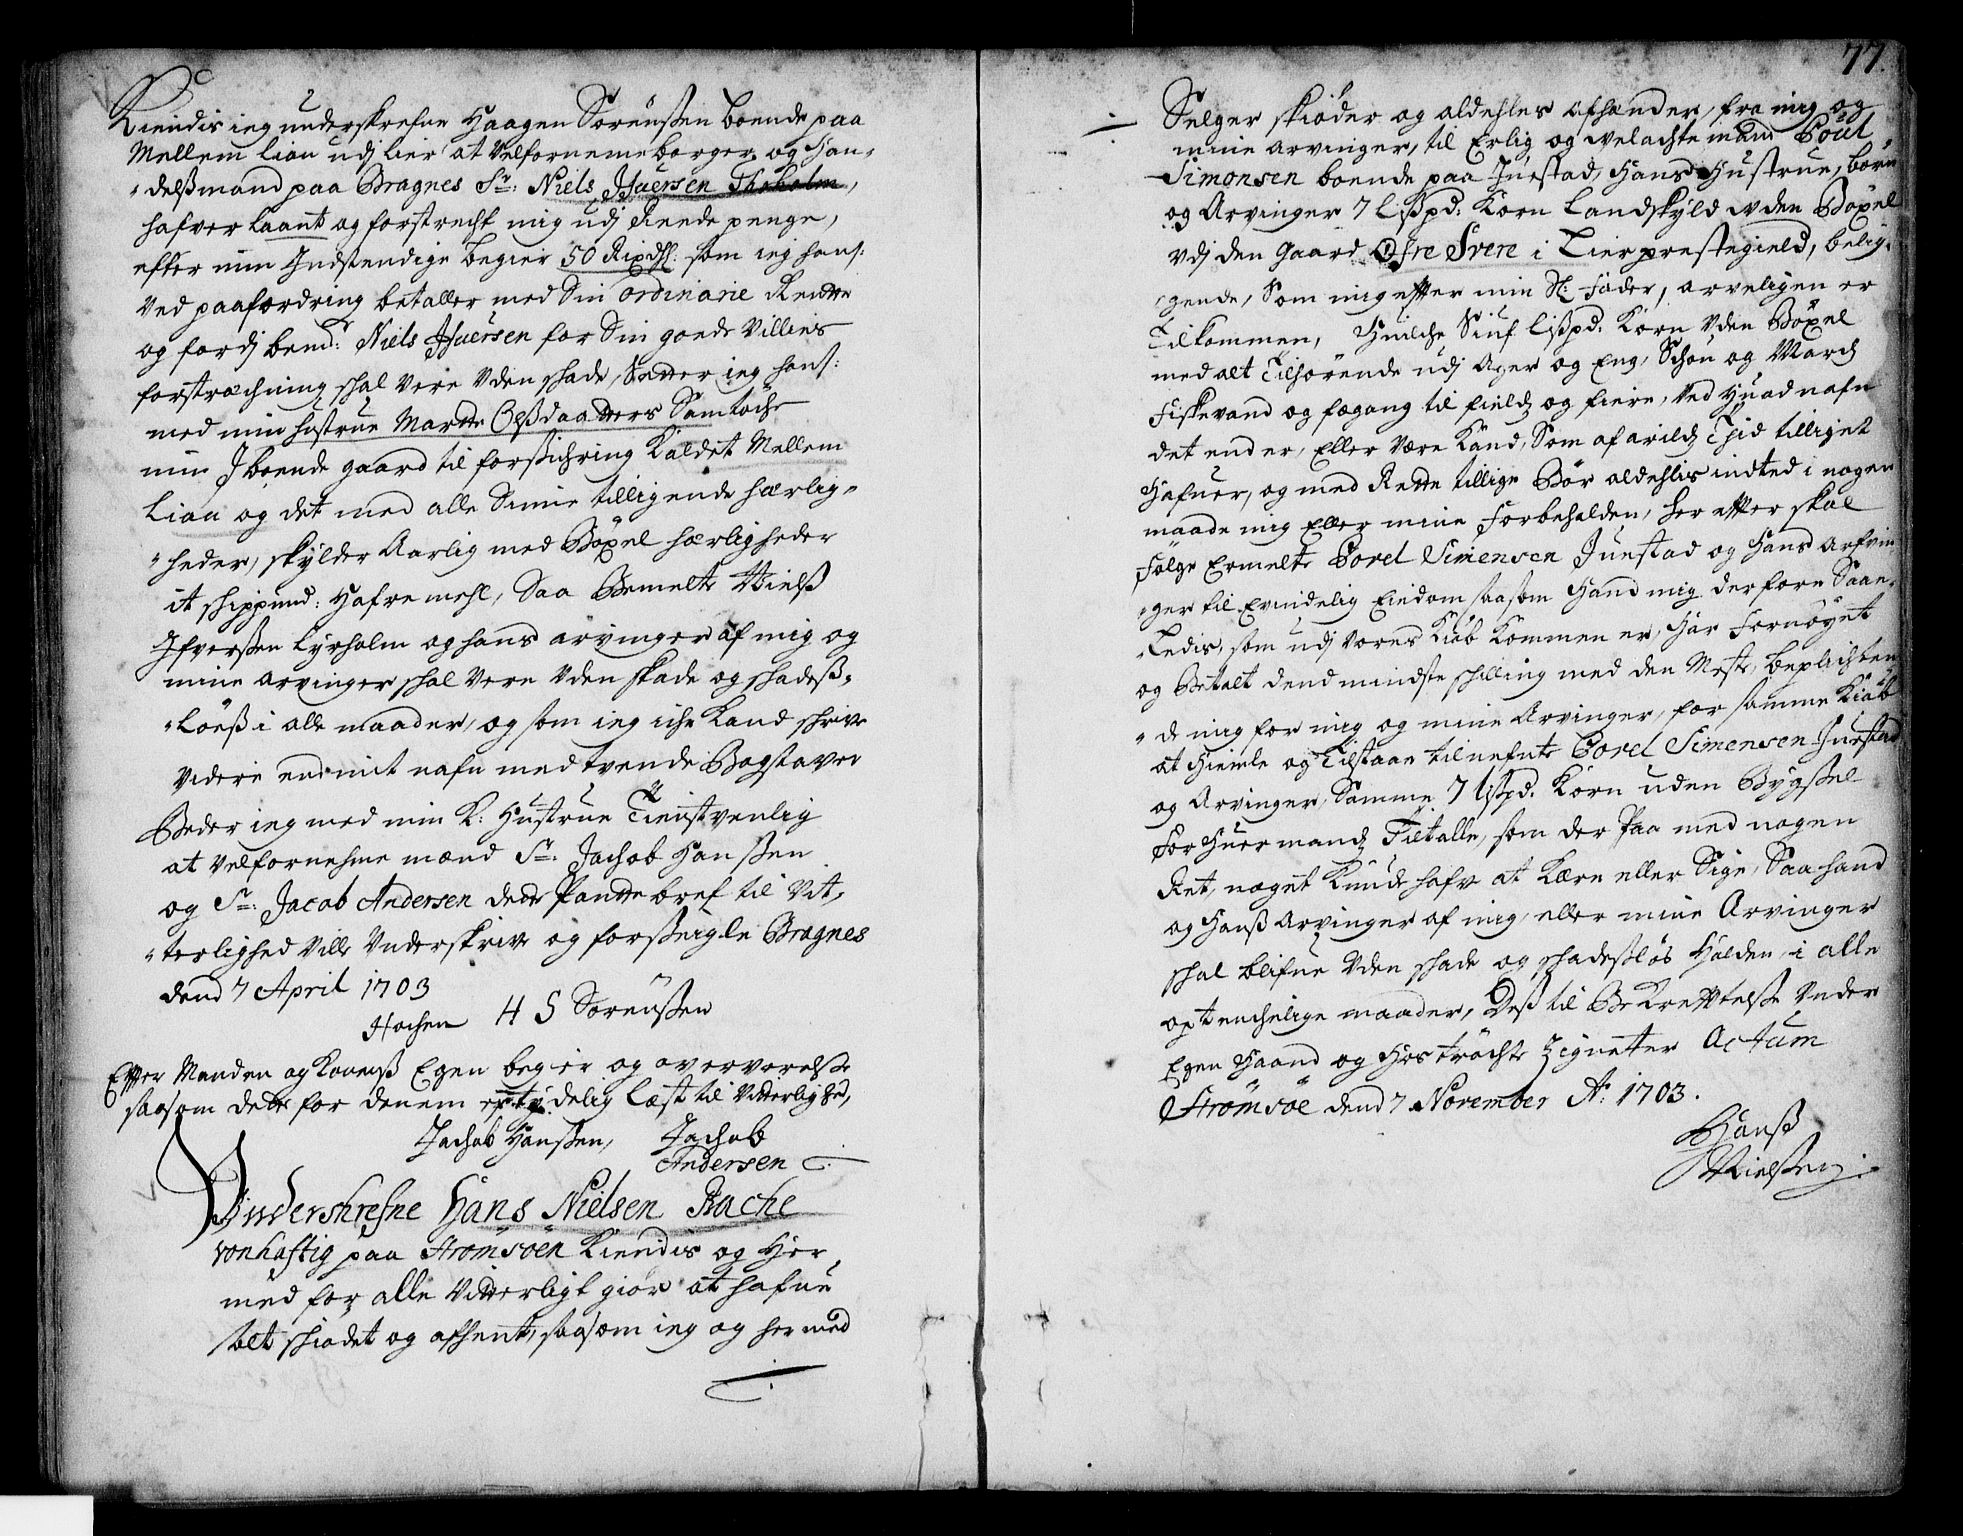 Kiendis ieg underskrefne Haagen Sorenßen boende paa
Mellem Liaa udj Lier at Velforneme borger og Han„
„delßmand paa Bragnes Sr: Niels Ifuersen
hafver laant og forstrecht mig udj Reede penge,
efter min Indstendige begier 50 Rixdl. som ieg hans:
Ved paafordring betaller med Sin ordinarie Rendte
og fordj bemt: Niels Ifuersen for Sin goede Villies
forstrechning shal Vere Uden shade, Setter ieg hans:
med min hustrue Marte Olßdaatters Samtöche
min Iboende gaard til forsichring Kaldet Mellem
Liaa og det med alle Sinne tilligende herlig„
„heder, skylder Aarlig med Böxel herligheder
it shippund: Hafremehl, Saa Bemelte Nielß
Ifverßen Lyrholm og hans arvinger af mig og
mine arvinger shal Vere Uden skade og shadeß„
„Löeß i alle maader, og som ieg iche Kand schrive
Videre end mit nafn med tvende Bogstaver
Beder ieg med min K: Hustrue Tienstvenlig
at Velfornehme mænd Sr: Jachob Hanßen
og Sr: Jacob Andersen dette Pantte bref til Vit„
„terlighed Ville Underskrive og forseigle Bragnes
dend 7 April 1703
Hochen H S Sorenßen
Efter Manden og Konenß Egen begier og oververelße
saasom dette for denem tydelig Læst til Vitterlighed,
Jachob Hanßen, Jachob
Andersen
Underskrefne Hans Nielsen Bache
vonhaftig paa Strömsöen Kiendis og Her„
med for alle Vitterligt giör at hafue
solt skiödet og afhent, saasom ieg og hermed
77.
Selger skiöder og aldehles afhender, fra mig og
mine arvinger, til Erlig og velachte mand Poul
Simonsen boende paa Juestad, Hans Hustrue, börn
og Arvinger 7 Lißpd: Korn Landskyld uden Böxel
udj den gaard Öfre Svere i Lier prestegield, belig„
„gende, Som mig efter min Sl: Fader, arveligen er
Tilkommen, Huilche Siuf Lißpd: Korn Uden Böxel
med alt Tilhörende udj Ager og Eng, Schou og March
Fiskevand og fægang til field og fiere, Ved Huad nafn
det end er, Eller Være Kand, Som af arilds Tiid tilliget
Hafuer, og med Rette tillige Bör aldehlis indted i nogen
maade mig Eller mine Forbeholden, her efter skal
Fölge Ermelte Povel Simensen Juestad og Hans arfvin„
„ger til Evindelig Eiedom saasom Hand mig derfore Saa„
„ledis, som udj Vores Kiöb Kommen er, Har Fornöyet
og Betalt dend mindste shilling med den Meste, beplichten„
„de mig for mig og mine Arvinger, for samme Kiöb
at Hiemle og Tilstaae tilnefnte Povel Simensen Juestad
og Arvinger, Samme 7 Lißpd. Korn uden Bygßel
For Huer mands Tiltalle, som der Paa med nogen
Ret, noget Kunde hafve at Kere eller Sige, Saa hand
og Hanß Arvinger af mig, eller mine Arvinger
shal blifue Uden shade og shadeßlös Holden i alle
optenchelige maader, Deß til Bekreftelße Under
Egen Haand og Hoströchte Zignetter Actum
Strömsöe dend 7 November Ao: 1703.
Hanß
Nielßen